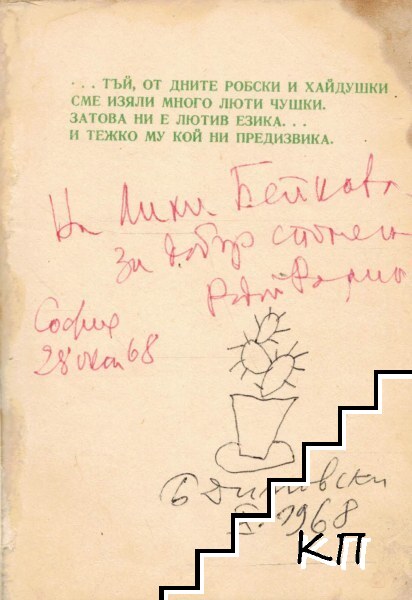 . . . ТЪЙ, ОТ ДНИТЕ РОБСКИ И ХАЙДУШКИ
СМЕ ИЗЯЛИ МНОГО ЛЮТИ ЧУШКИ.
ЗАТОВА НИ Е ЛЮТИВ ЕЗИКА. . .
И ТЕЖКО МУ КОЙ НИ ПРЕДИЗВИКА.
На Лили Бейкова
за добър спомен
Радой Ралин
София
28 юли 68
Б Димовски
1968
КП